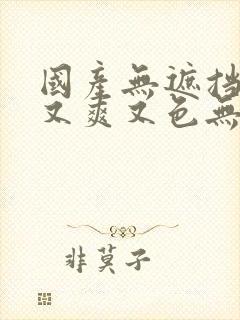 國産無遮挡
又爽又色無
非莫子